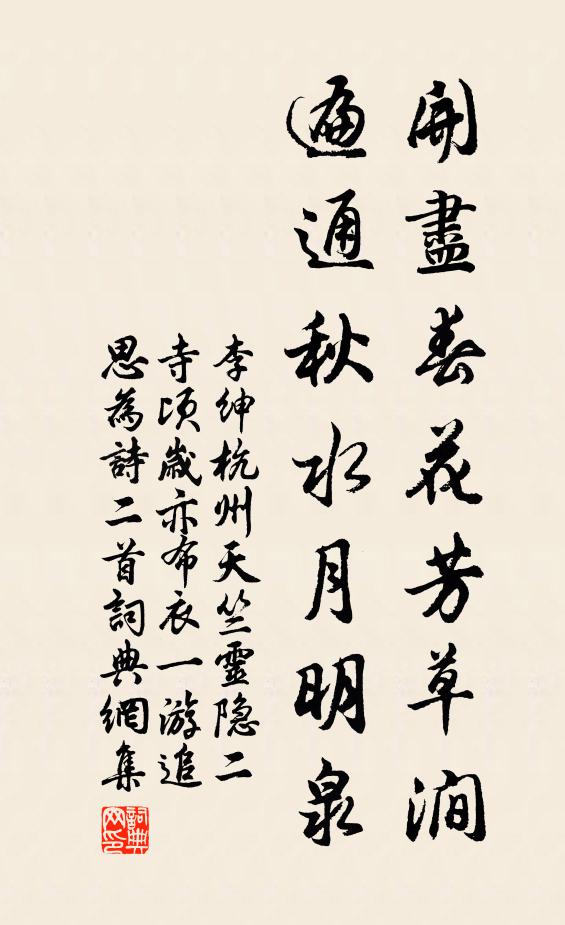 開盡春花芳草澗
遍通秋水月明泉
李紳杭州天竺靈隐二
寺頃歲亦布衣一游追
思為詩二首詞典網集
詞典网印